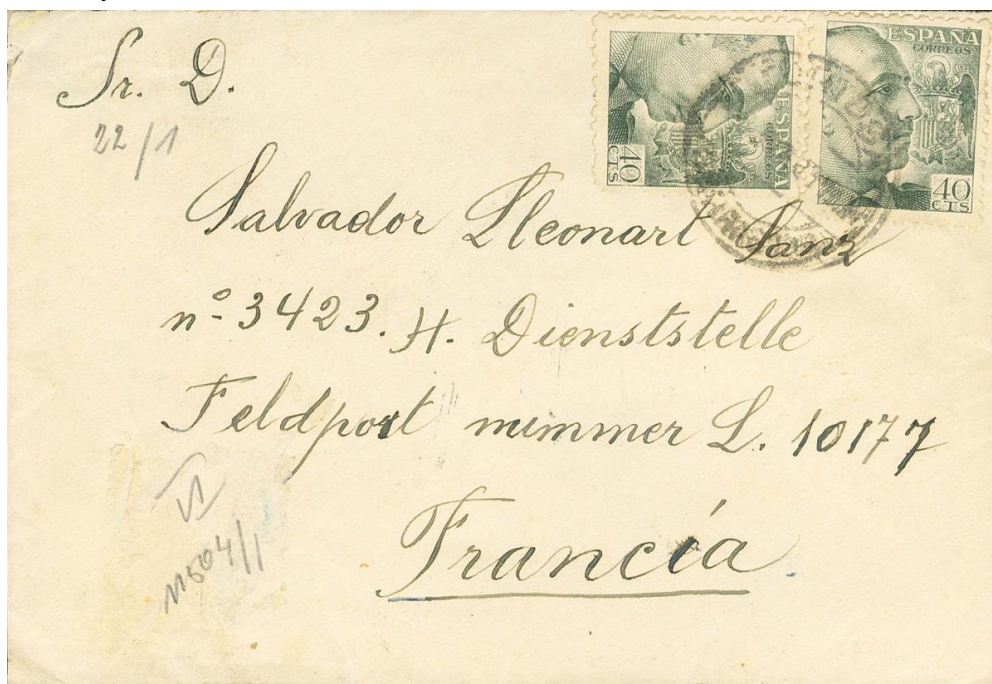 ESPAÑA
CORREOS
40
CTS
ESPAÑA
CORREOS
40
CTS
Sr. D.
22/1
Salvador Lleonart Sanz
nº 3423. H. Dienststelle
Feldport nummer L. 10177
Francía.
VI